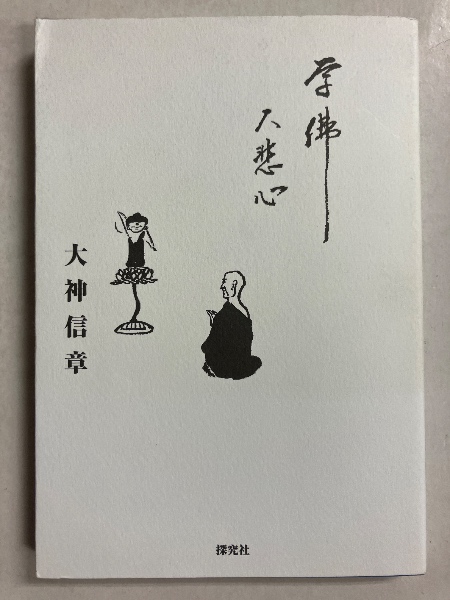 学佛
大悲心
大神信章
探究社